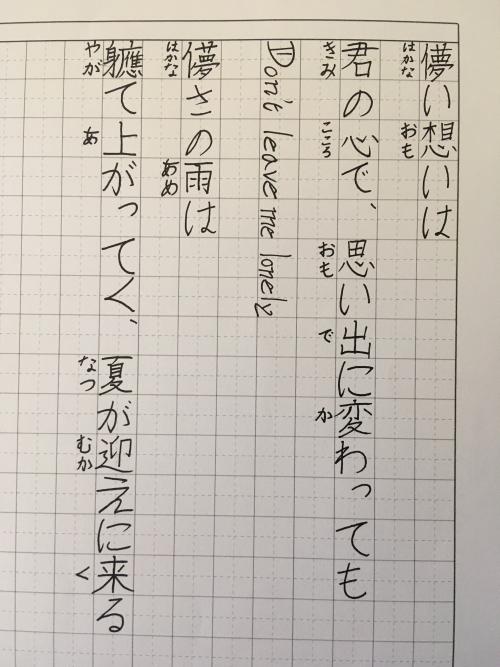 儚い想いは
はかな おも
君の心で、思い出に変わっても
きみ こころ おも で か
Don't leave me lonely
儚さの雨は
はかな あめ
軈て上がってく、夏が迎えに来る
やが あ なつ むか く